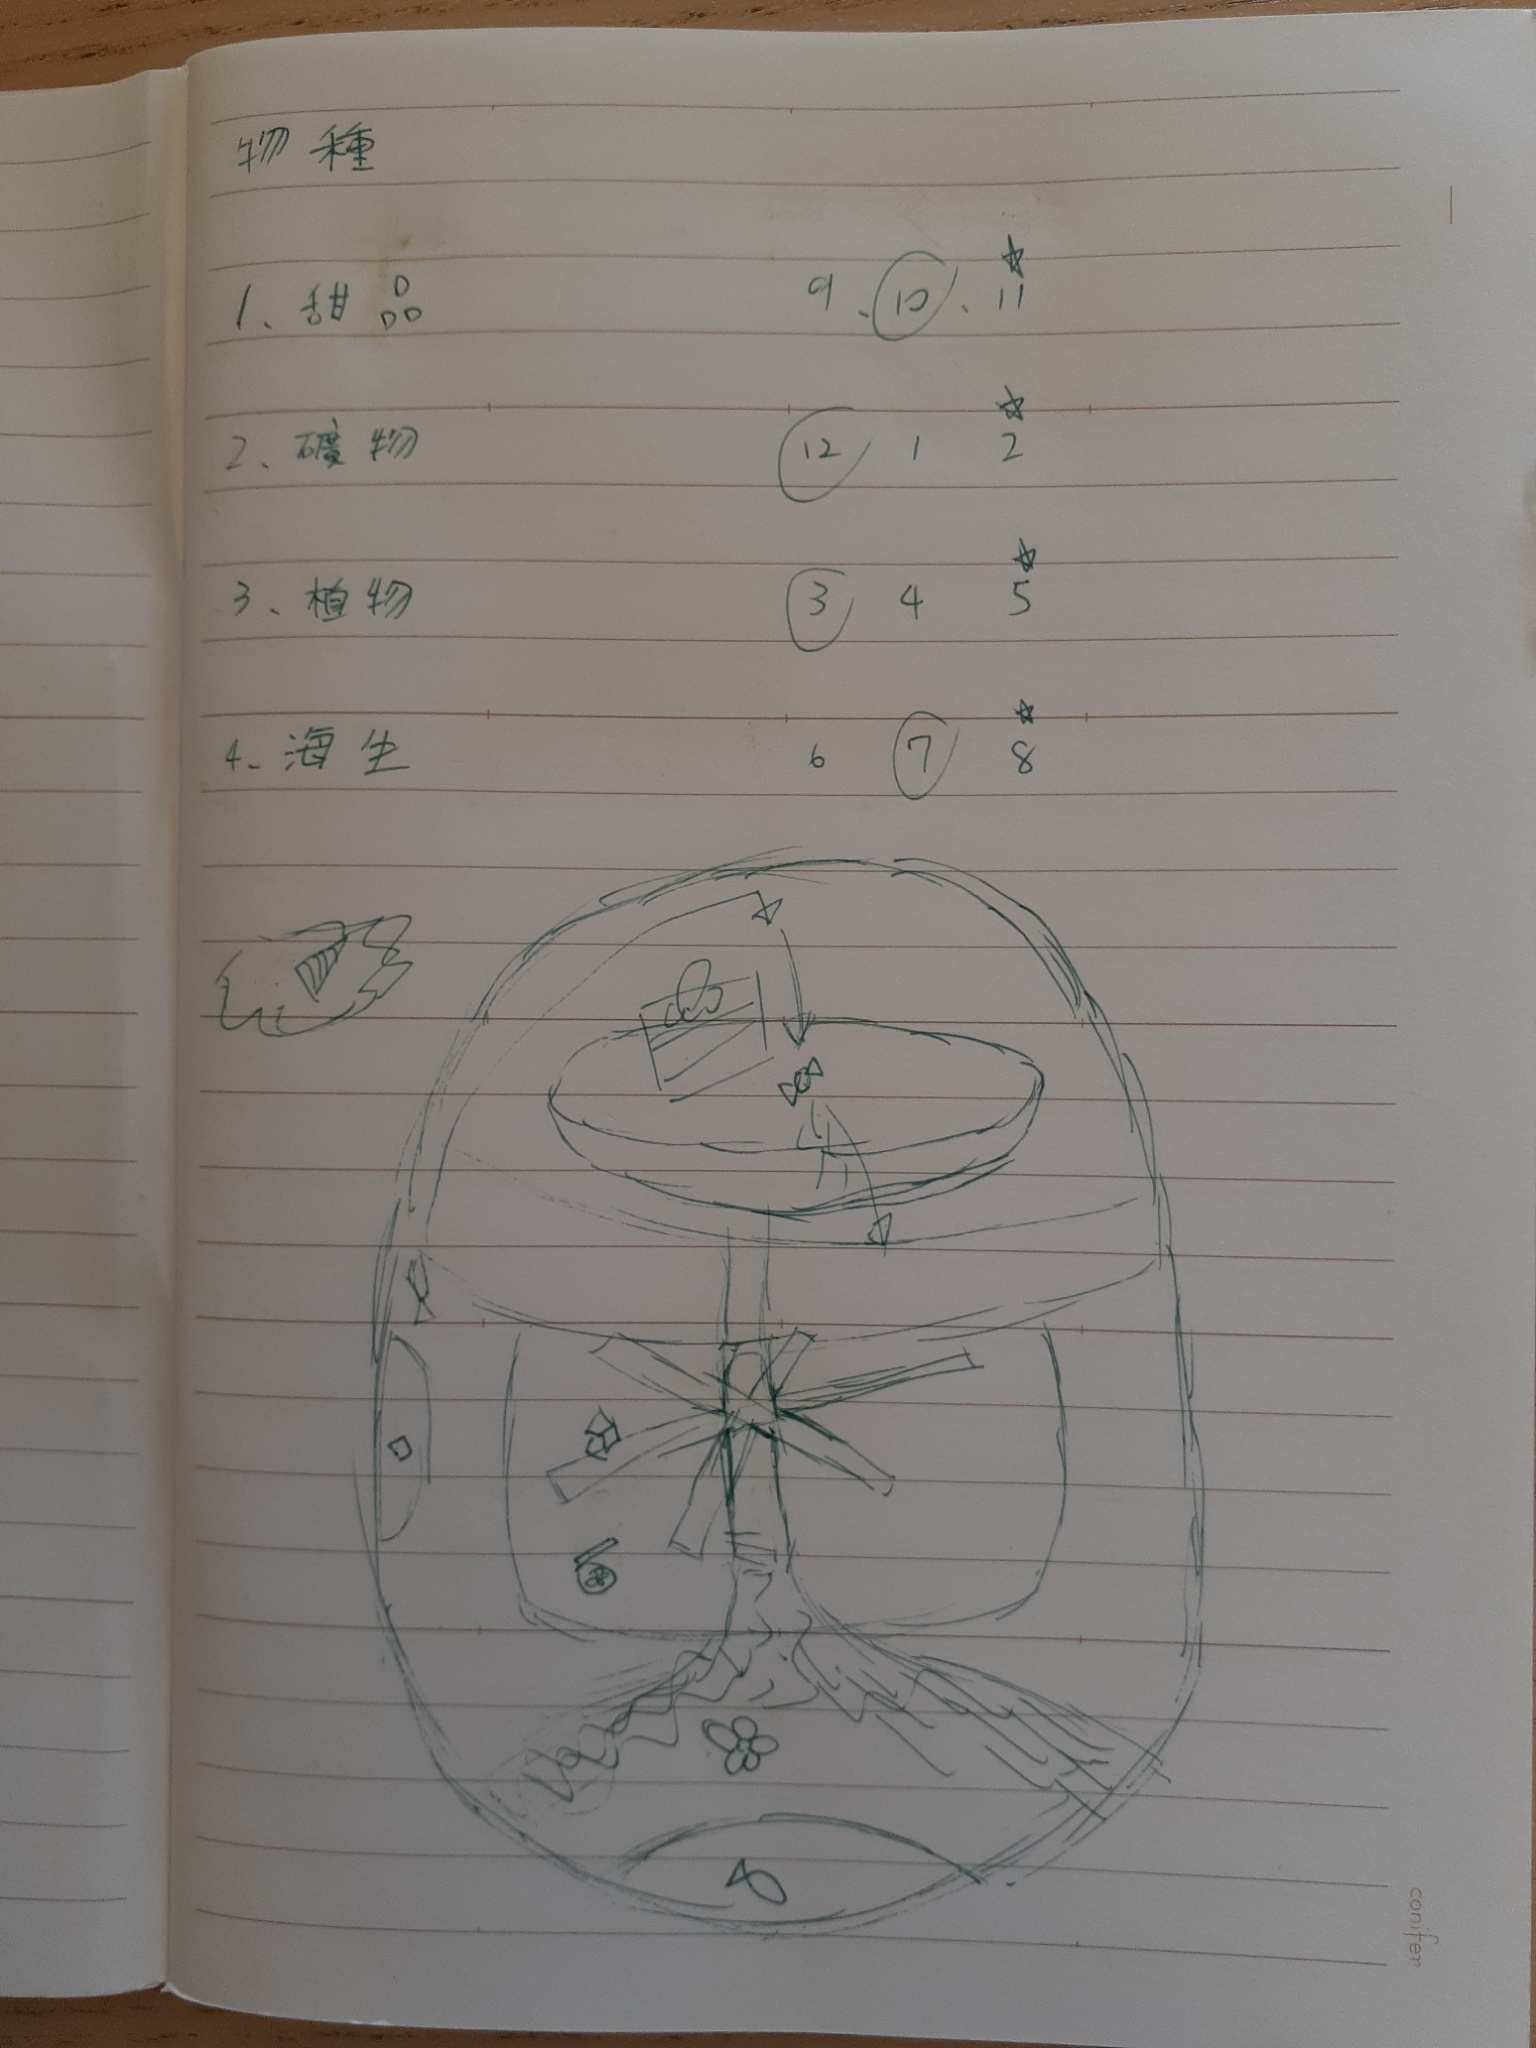 物種
1、甜品 9、10、11
2、礦物 12 1 2
3、植物 3 4 5
4、海生 6 7 8
conifer